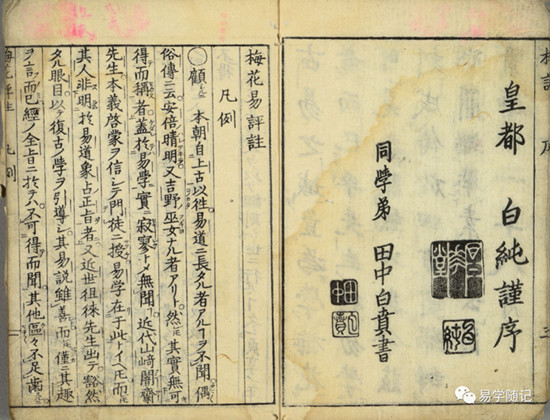 皇都 白純謹序
同學弟 田中白賁書
梅花易評註
凡例
○顧ニ本朝自上古以往易道ニ長タル者アルヿヲ不聞偶
俗傳ニ云安倍晴明又吉野巫女ナル者アリト然𪜈其實無可
得而據者蓋於易學實ニ寂寥トメ無聞近代山﨑闇齋
先生本義啓蒙ヲ信シテ門徒ニ授易学在于此トイヘ𪜈而
其人非明於易道象占正旨者又近世徂徠先生出テ豁然
タル眼目以テ復古ノ學ヲ引導シ其易説雖善而僅ニ其趣
ヲ言而已經ノ全旨ニ於テハ不可得而聞其他區々不足齒
易学随记